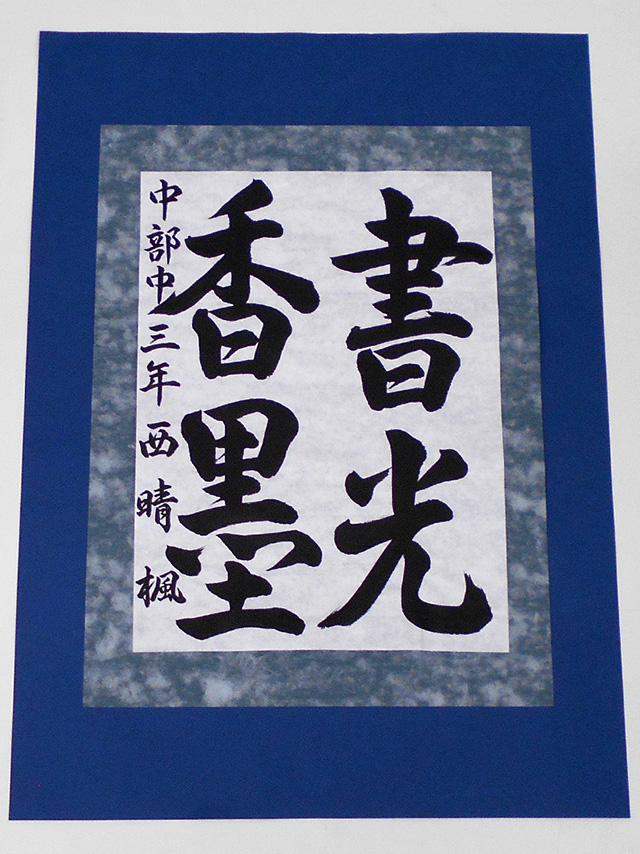 書光
香墨
中部中三年西晴楓